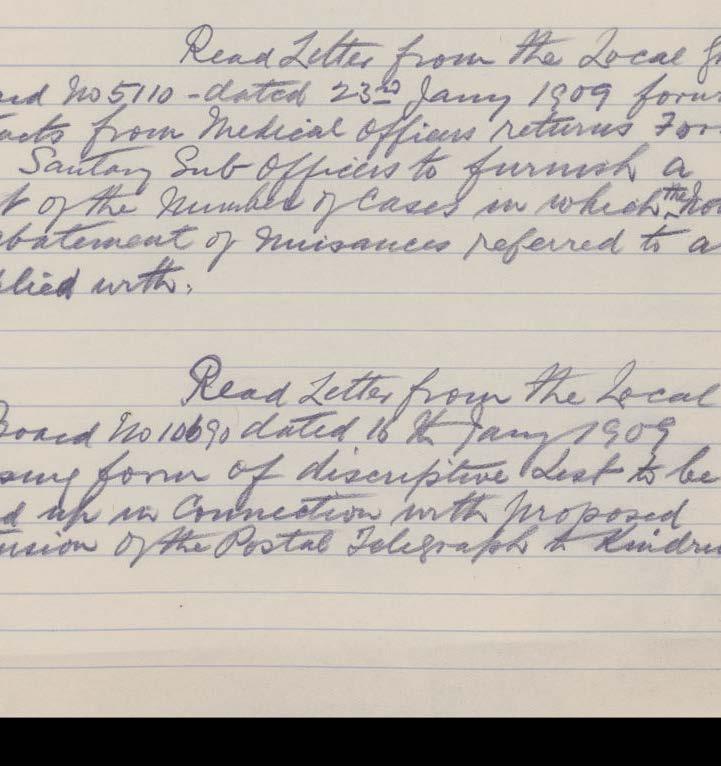 Read Letter from the Local G
rd No 5110 - dated 23rd Jany 1909 forw
acts from Medical Officers returns For
Santary Sub Officers to furnish a
t of the Number of Cases in which the No
batement of Nuisances referred to a
plied with.
Read Letter from the Local
Board No 10690 dated 16th Jany 1909
sing form of discriptive List to be
d up in Connection with proposed
ension of the Postal Telegraph to Kindru